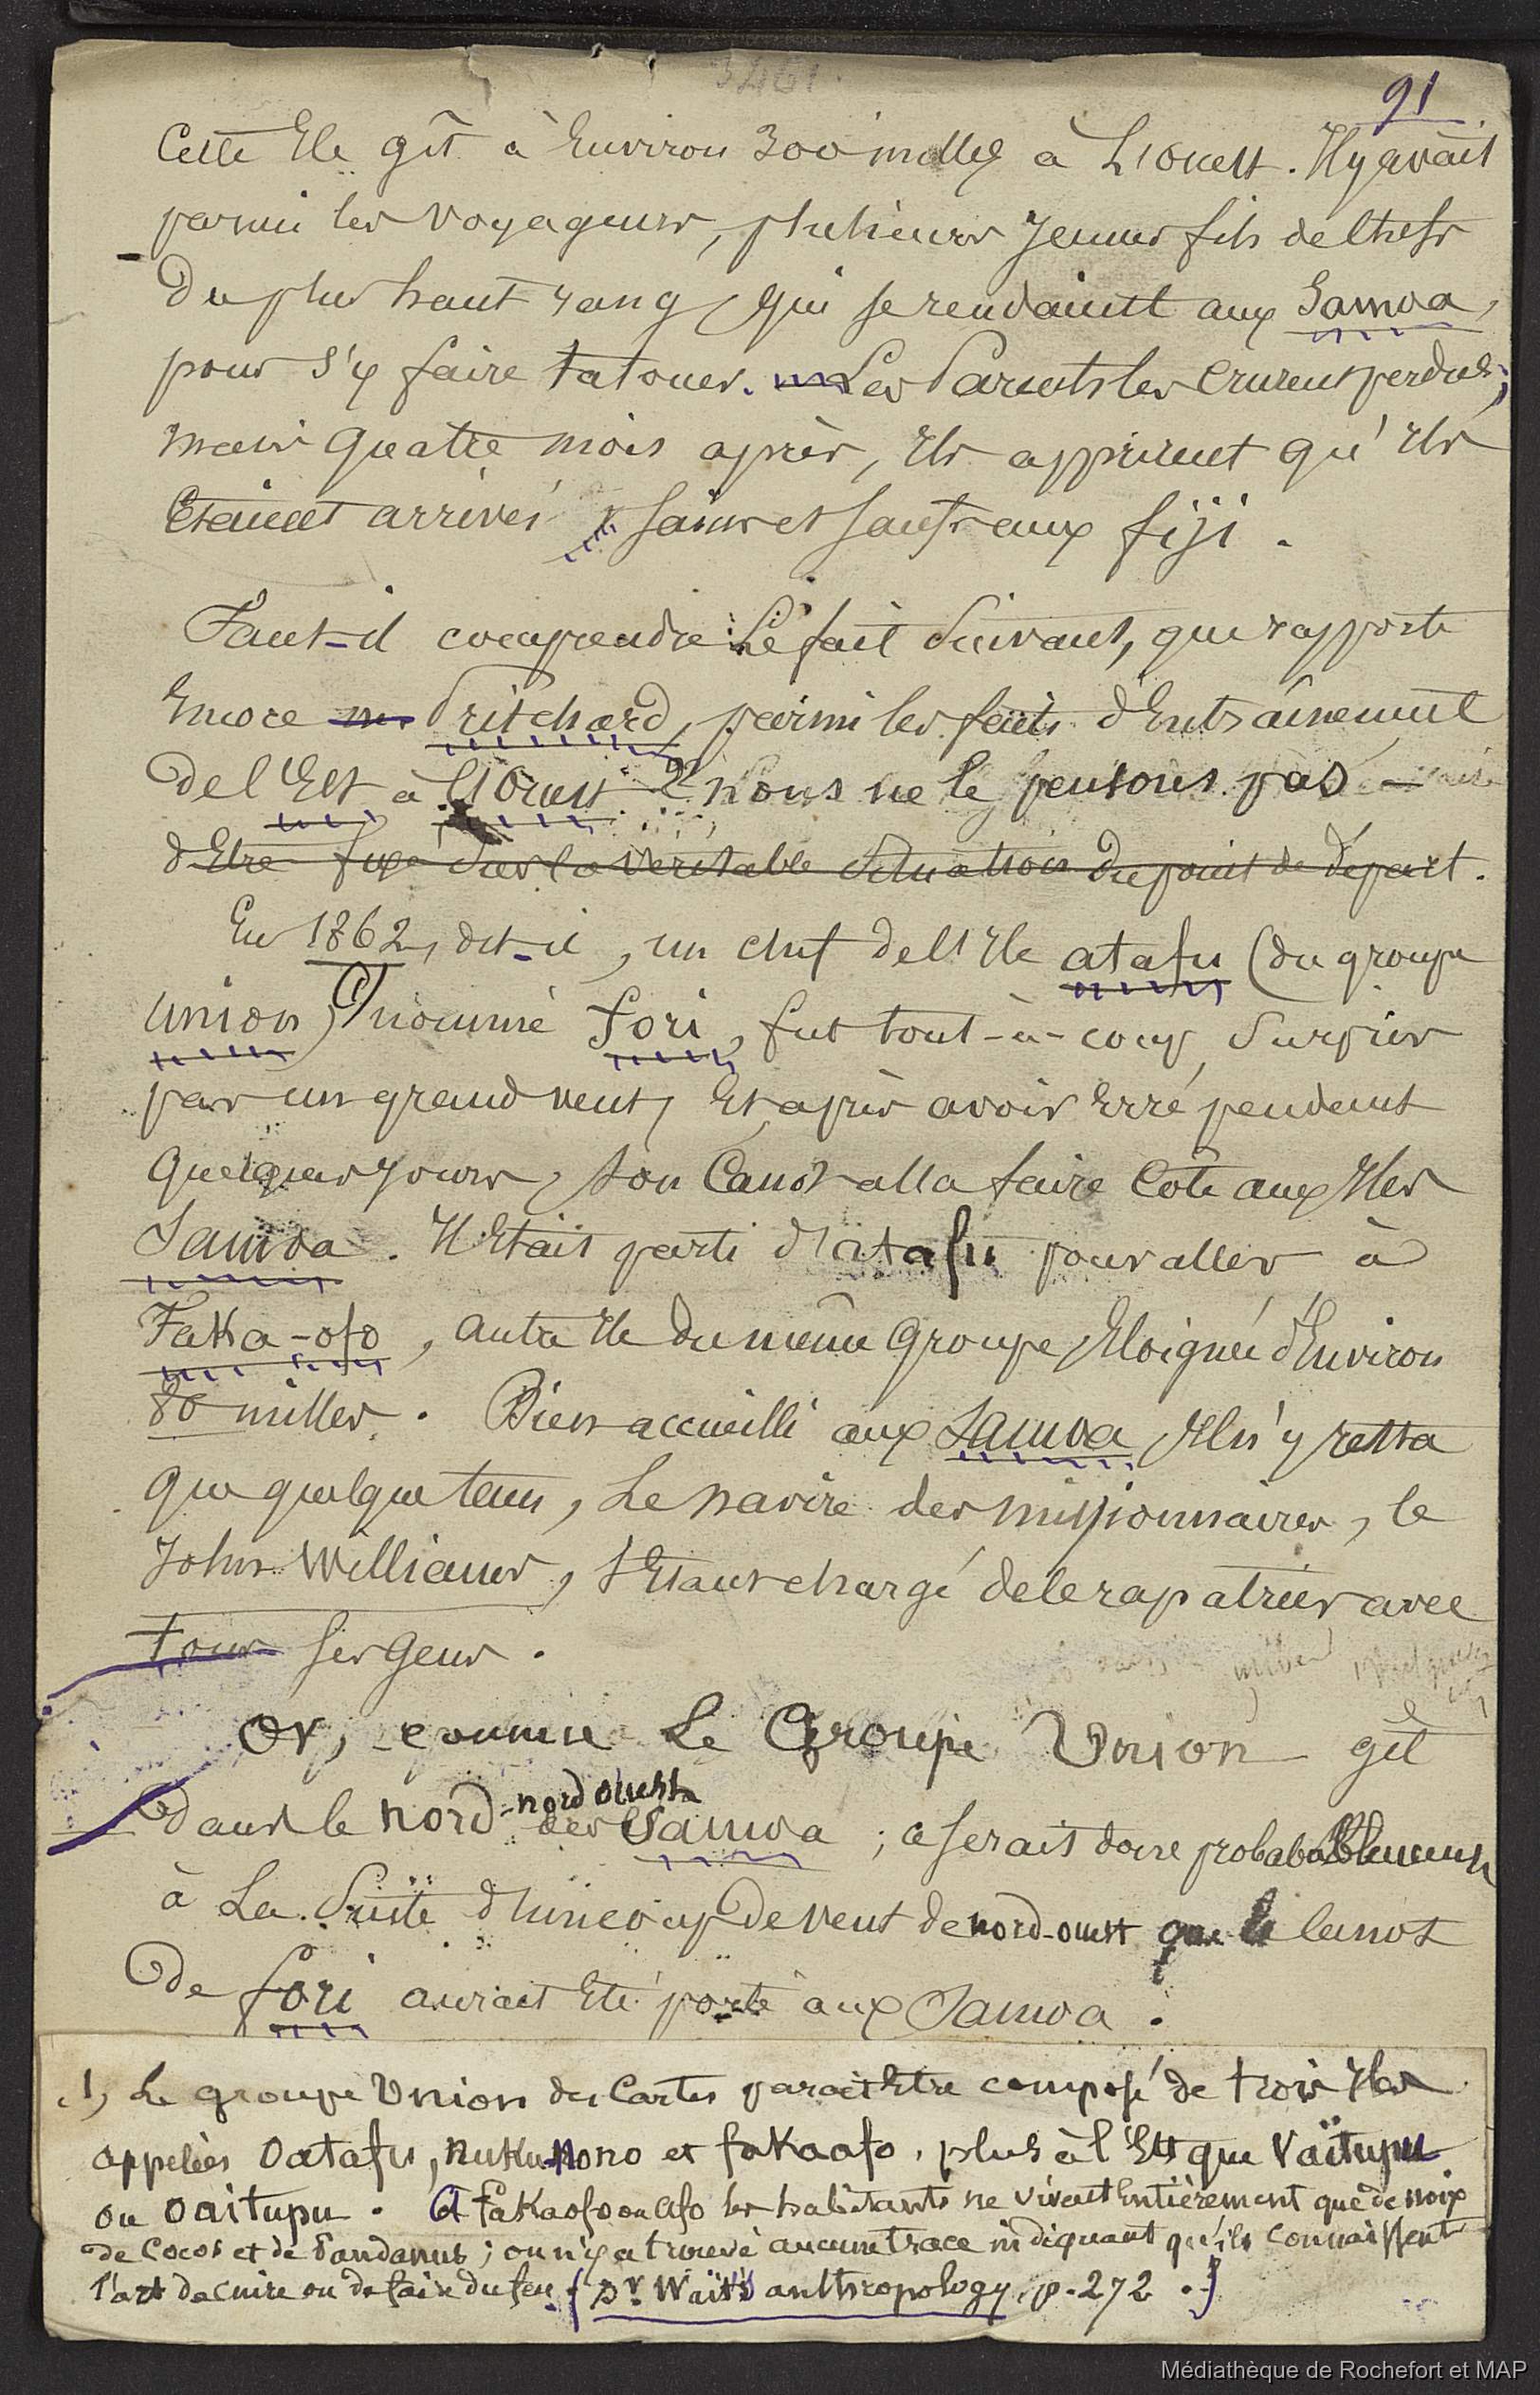 91
Cette Ile gît à Environ 300 milles à L'Ouest. Il y avait
parmi les voyageurs, plusieurs jeunes fils de Chefs
du plus haut rang, qui se rendaient aux Samoa,
pour s'y faire tatouer. Les Parents les crurent perdus;
mais quatre mois après, ils apprirent qu'ils
Etaient arrivés sains et saufs aux fiji.
Faut-il comprendre Le fait Suivant, que rapporte
Encore Pritchard, parmi les faits d'Entraînement
de l'Est à l'Ouest? Nous ne le pensons pas
d'Etre fixé sur la véritable situation du point de départ.
En 1862, dit-il, un chef de l'Ile atafu (du groupe
union (1) nommé fori, fut tout-à-coup surpris
par un grand vent, et après avoir Erré pendant
quelques jours, son Canot alla faire Côte aux Iles
Samoa. Il Etait parti d'atafu pour aller à
Faka-ofo, autre Ile du même groupe, Eloignée d'Environ
80 milles. Bien accueilli aux Samoa, Il n'y resta
que quelque tems, Le navire des missionnaires, le
John Williams, s'Etant chargé de le rapatrier avec
tous ses gens.
Or, comme Le Groupe Union gît
dans le nord-nord ouest des Samoa; ce serait donc probablement
à La Suite d'un coup de vent de nord-ouest que le canot
de fori aurait Eté porté aux Samoa.
1) Le groupe Union des Cartes parait Etre composé de trois Iles
appelées Oatafu, Nuku-Nono et fakaafo, plus à l'Est que Vaïtupu
ou Oaitupu. A fakaofo ou afo les habitants ne vivent Entièrement que de noix
de Cocos et de Pandanus; on n'y a trouvé aucune trace indiquant qu'ils connaissent
l'art de cuire ou de faire du feu. (Dr. Waïtz anthropology, p. 272.)
Médiathèque de Rochefort et MAP